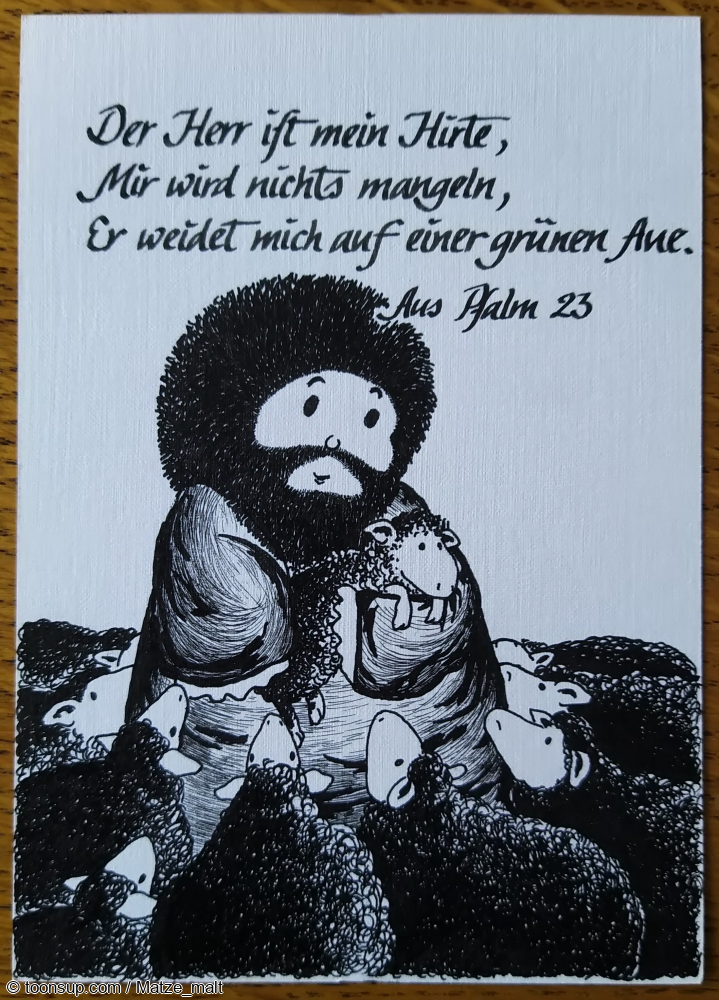 Der Herr ist mein Hirte,
Mir wird nichts mangeln,
Er weidet mich auf einer grünen Aue.
Aus Psalm 23
© toonsup.com / Matze_malt